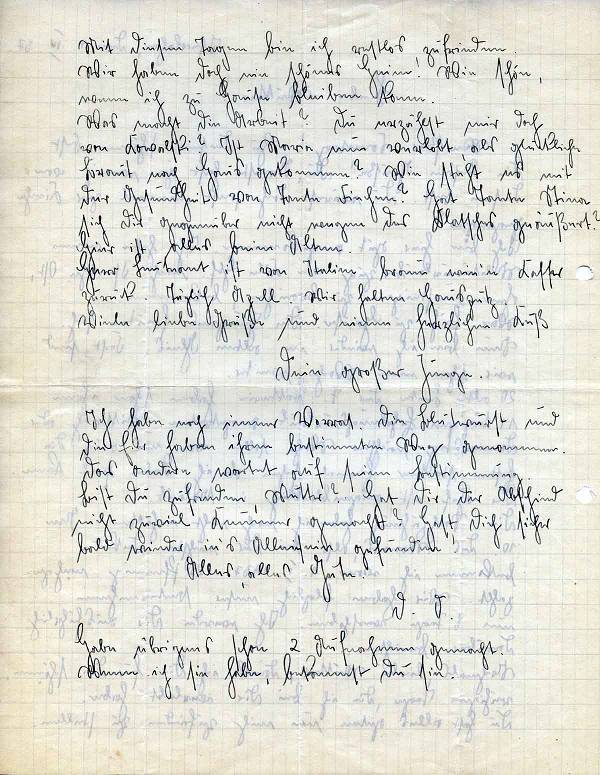 Mit diesen Tagen bin ich restlos zufrieden.
Wir haben doch ein schönes Heim. Wie schön,
wenn ich zu Hause bleiben kann.
Was macht die Arbeit? Du erzählst mir doch
von Kowalski? Ist Maria nun verlobt als glückliche
Braut nach Haus gekommen? Wie steht es mit
der Gesundheit von Tante Finchen? Hat Tante Stina
sich Dir gegenüber nicht wegen des Klatsches geäußert?
Hier ist alles beim Alten.
Herr Leutnant ist von Italien braun wie'n Kaffer
zurück. Täglich Apell. Wir halten Hausputz
Viele liebe Grüße und einen herzlichen Kuß
Dein großer Junge.
Ich habe noch immer Vorrat. Die Blutwurst und
die Eier haben ihren bestimmten Weg genommen.
Das andere wartet auf seine Bestimmung
Bist Du zufrieden, Mutter? Hat Dir der Abschied
nicht zuviel Kummer gemacht? Hast Dich sicher
bald wieder in's Alleinsein gefunden,
Alles, alles Gute.
D. J.
Habe übrigens schon 2 Aufnahmen gemacht.
Wenn ich sie habe, bekommst Du sie.